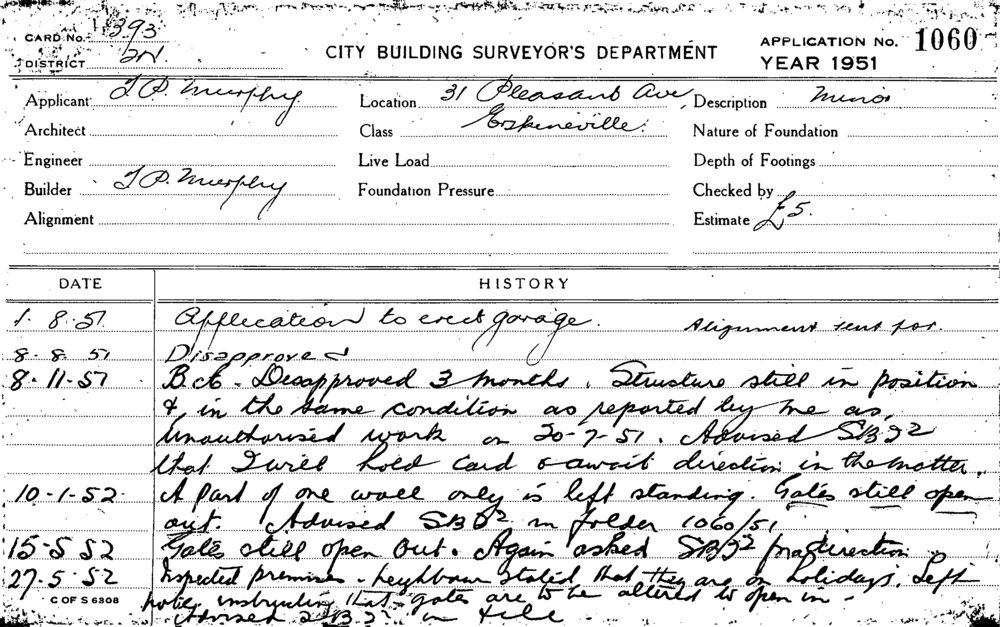 CARD No. 393
DISTRICT 2N
CITY BUILDING SURVEYOR'S DEPARTMENT
APPLICATION No. 1060
YEAR 1951
Applicant T P. Murphy
Location 31 Pleasant Ave,
Description Minor
Architect
Class Erskineville.
Nature of Foundation
Engineer
Live Load
Depth of Footings
Builder T P. Murphy
Foundation Pressure
Checked by
Alignment
Estimate £5.
DATE HISTORY
1.8.51 Application to erect garage. Alignment sent for.
8.8.51 Disapproved
8-11-51 Disapproved 3 months. Structure still in position
& in the same condition as reported by me as,
unauthorised work on 20-7-51. Advised
that I will hold card & await direction in the matter.
10-1-52 A part of one wall only is left standing. Gates still open
out. Advised in folder 1060/51
15-5-52 Gates still open out. Again asked for direction.
27-5-52 Inspected premises. Neighbour stated that they are on holidays. Left
C OF S 6308
notice instructing that gates are to be altered to open in.
Advised in file.